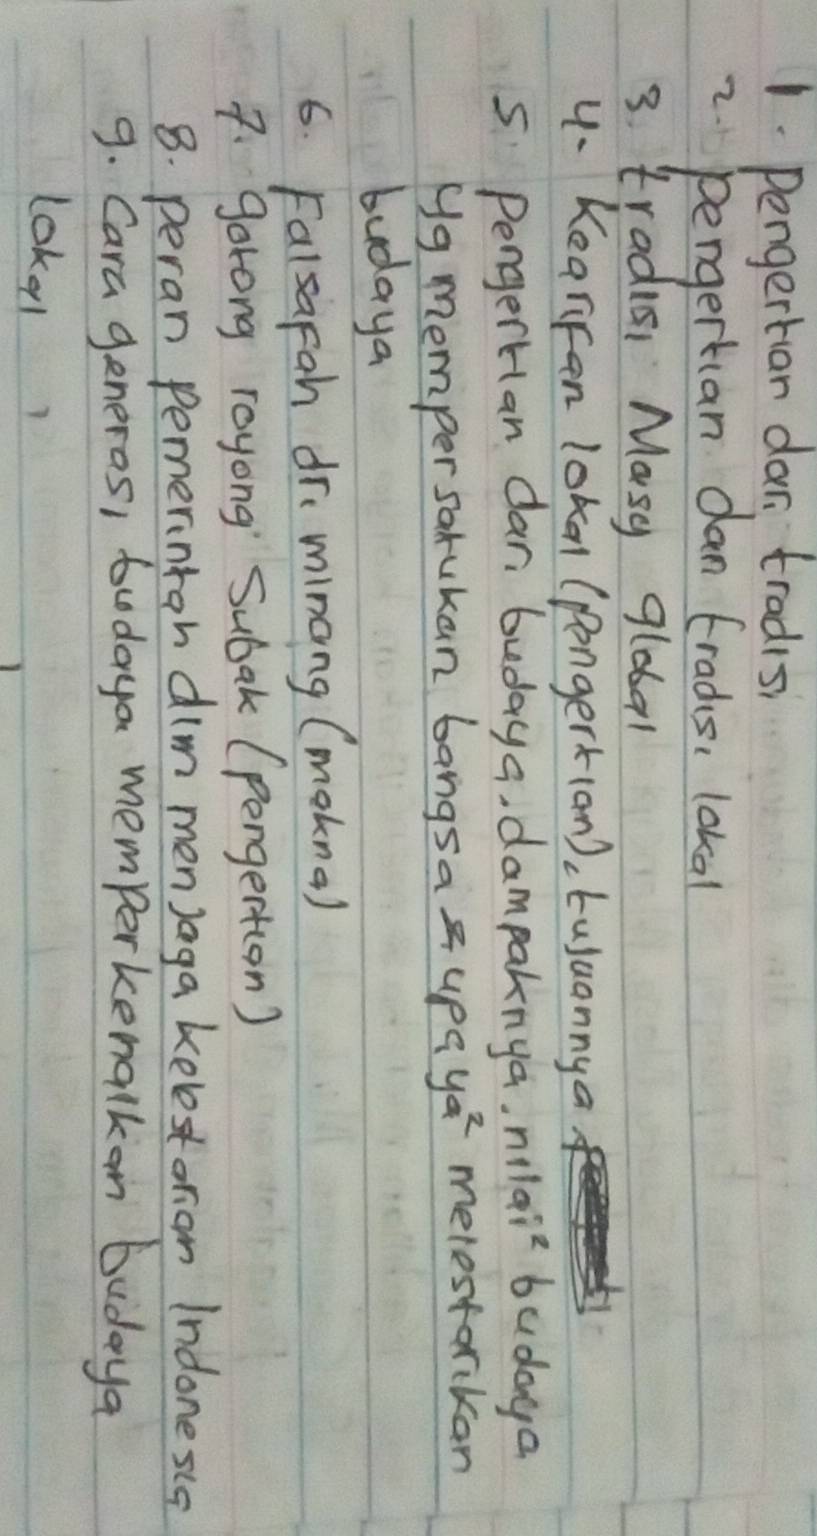 1. Pengertian dari tradisi
2. Pengertian dari tradisi lokal
3. tradisi Masy global
4. Kearifan lokal (pengertian), tujuannya
5. Pengertian dari budaya, dampaknya, nilai² budaya
yg mempersatukan bangsa & upaya² melestarikan
budaya
6. Falsafah dri minang (makna)
7. gotong royong Subak (pengertian)
8. peran pemerintah dlm menjaga kelestarian Indonesia
9. Cara generasi budaya memperkenalkan budaya
lokal